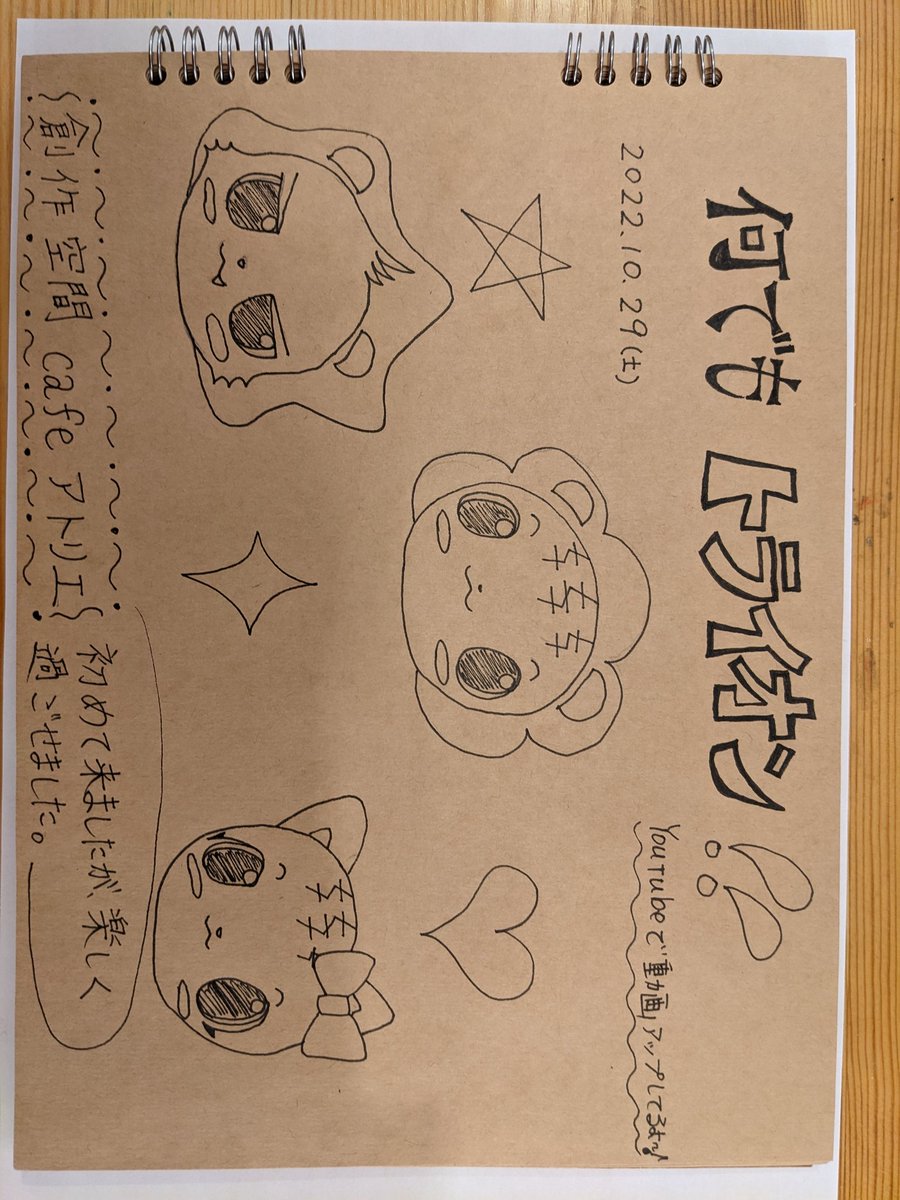 何でもトライオン!!
2022.10.29(土)
YouTubeで動画アップしてるよ〜♪
キキキ
キキ
創作空間cafeアトリエ
初めて来ましたが、楽しく
過ごせました。